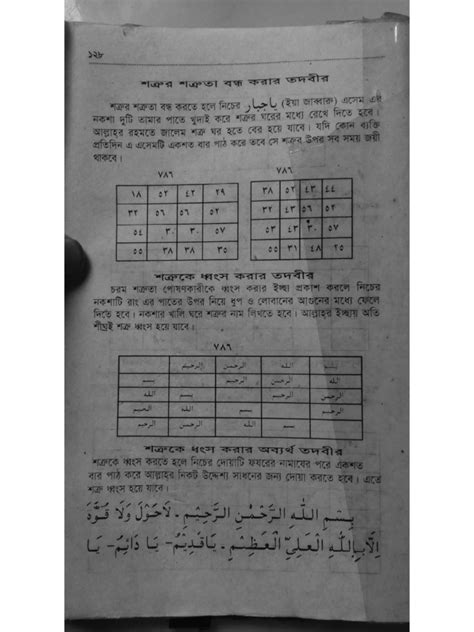 ১২৮
শত্রুর শত্রুতা বন্ধ করার তদবীর
শত্রুর শত্রুতা বন্ধ করতে হলে নিচের ياجبار (ইয়া জাব্বারু) এসেম এর
নকশা দুটি তামার পাতে খুদাই করে শত্রুর ঘরের মধ্যে রেখে দিতে হবে।
আল্লাহর রহমতে জালেম শত্রু ঘর হতে বের হয়ে যাবে। যদি কোন ব্যক্তি
প্রতিদিন এ এসেমটি একশত বার পাঠ করে তবে সে শত্রুর উপর সব সময় জয়ী
থাকবে।
৭৮৬ ৭৮৬
১৮ ৫২ ৪২ ২৯ ৩৮ ৫২ ৪৩ ৪৪
৩২ ৫৬ ৫২
৫৪ ৩০ ৫৭ ৫৩ ৫৭
৫৫ ৩৮ ৩৫ ৫৫
শত্রুকে ধ্বংস করার তদবীর
চরম শত্রুতা পোষণকারীকে ধ্বংস করার ইচ্ছা প্রকাশ করলে নিচের
নকশাটি রাং এর পাতের উপর নিয়ে ধুপ ও লোবানের আগুনের মধ্যে ফেলে
দিতে হবে। নকশার খালি ঘরে শত্রুর নাম লিখতে হবে। আল্লাহর ইচ্ছায় অতি
শীঘ্রই শত্রু ধ্বংস হয়ে যাবে।
৭৮৬
الرحيم الرحمن الله بسم
الرحيم الرحمن الله
بسم الرحيم الرحمن
الله بسم
الرحمن الله بسم
শত্রুকে ধংস করার অব্যর্থ তদবীর
শত্রুকে ধ্বংস করতে হলে নিচের দোয়াটি ফযরের নামাযের পরে একশত
বার পাঠ করে আল্লাহর নিকট উদ্দেশ্য সাধনের জন্য দোয়া করতে হবে। এতে
শত্রু ধ্বংস হয়ে যাবে।
بِسْمِ اللهِ الرَّحْمٰنِ الرَّحِيْمِ ـ لَاحَوْلَ وَلَا قُوَّةَ
اِلَّابِاللهِ الْعَلِىِّ الْعَظِيْمِ ـ يَاقَدِيْمُ – يَا دَائِمُ – يَا